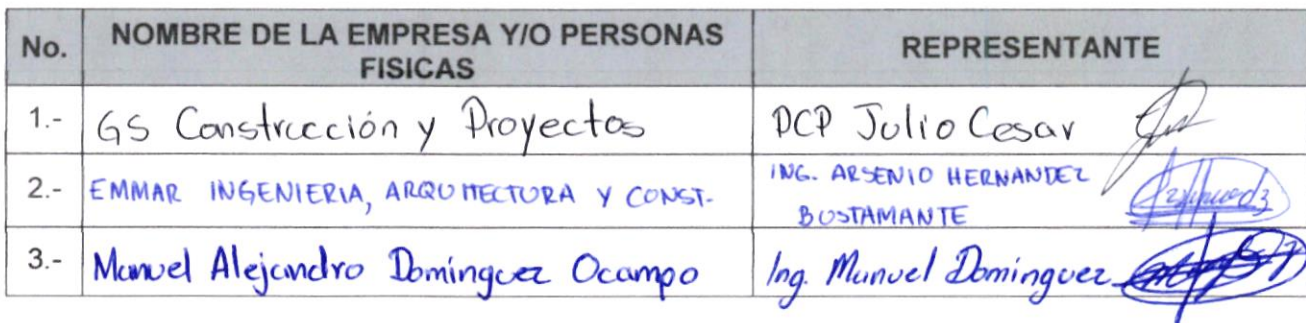 No. NOMBRE DE LA EMPRESA Y/O PERSONAS FISICAS REPRESENTANTE
1.- GS Construcción y Proyectos DCP Julio Cesar
2.- EMMAR INGENIERIA, ARQUITECTURA Y CONST. ING. ARSENIO HERNANDEZ BUSTAMANTE
3.- Manuel Alejandro Dominguez Ocampo Ing. Manuel Dominguez